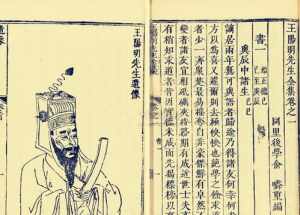 王陽明先生全集卷之一
後學
書一
辰中諸生 己巳
謫居兩年無可與語者歸途乃得諸友何幸何幸
方以爲喜又遽爾別去極怏怏也絕學之餘求道
者少一齊衆楚最易搖奪自非豪傑鮮有卓然不
變者諸友宜相砥礪夾持務期有成近世士夫亦
有稍知求道者皆因實德未成而先揭標榜以來
王陽明先生遺像
遺像